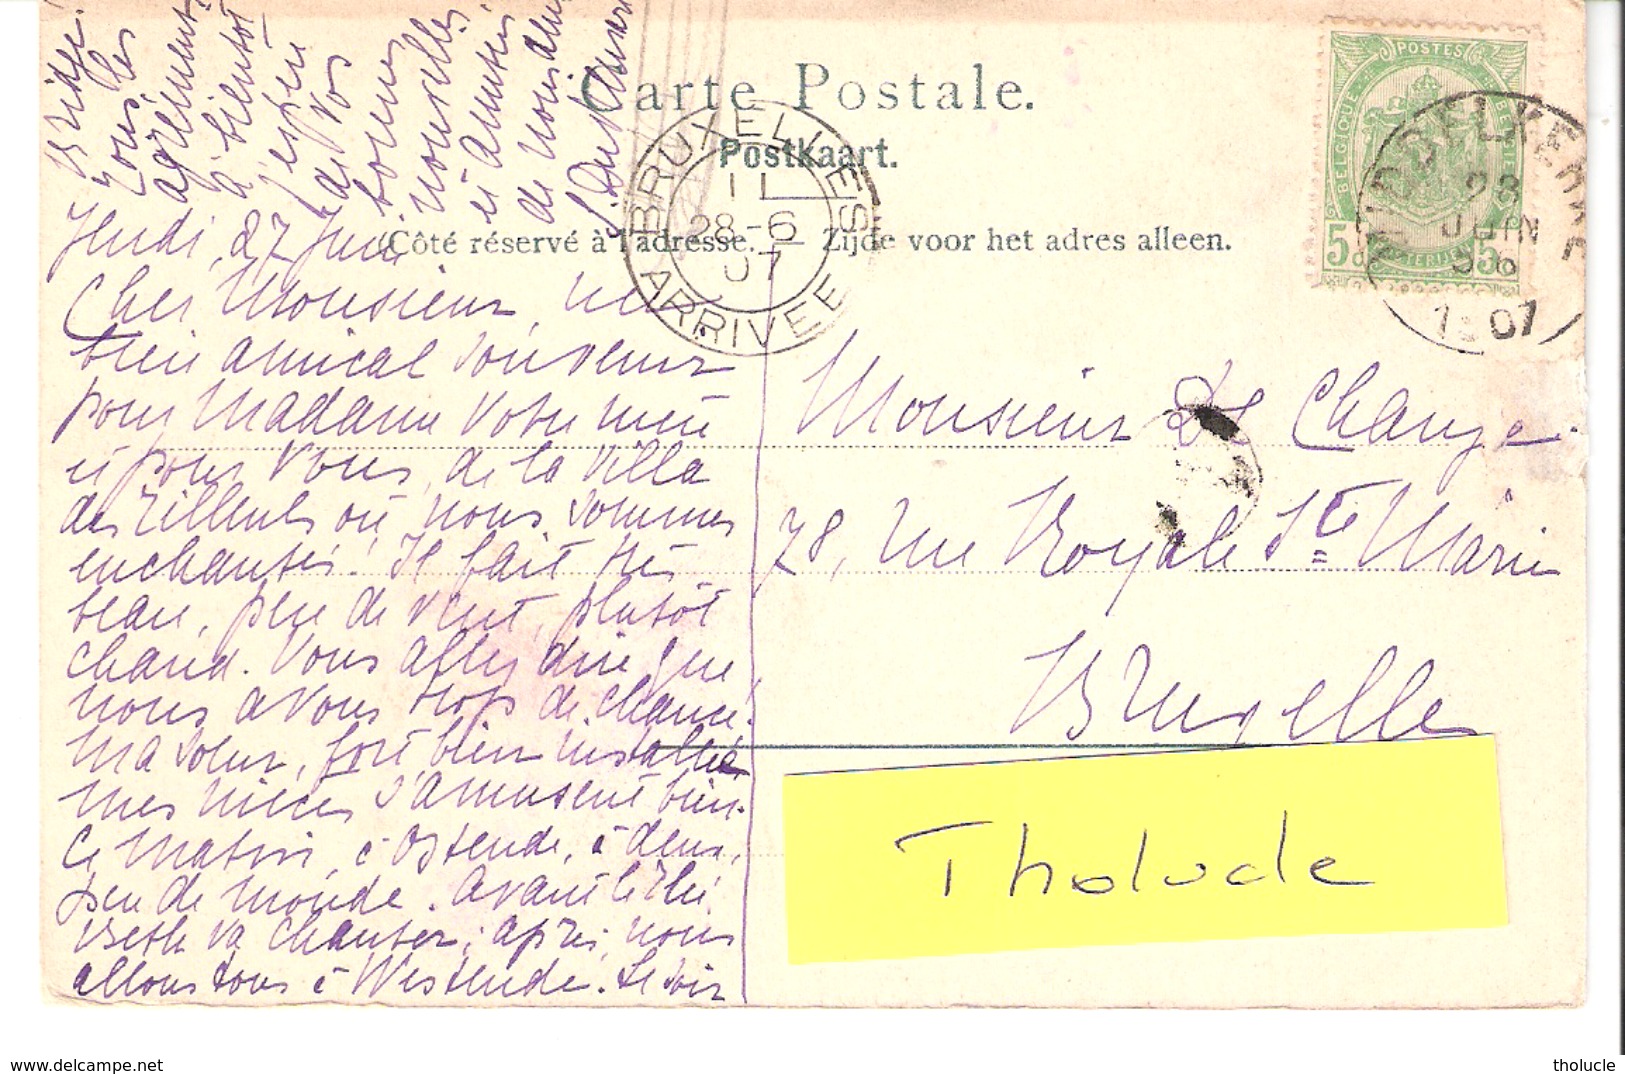 Carte Postale.
Postkaart.
Côté réservé à l'adresse. — Zijde voor het adres alleen.
POSTES
BELGIQUE
BELGIË
5
5
MIDDELKERKE
28
JUIN
1907
BRUXELLES
11
28-6
07
ARRIVEE
Jeudi, 27 Juin
Cher Monsieur, un
bien amical souvenir
pour Madame Votre mère
et pour Vous, de la Villa
des Tilleuls où nous sommes
enchantés! Il fait très
beau, peu de vent, plutôt
chaud. Vous allez dire que
nous avons trop de chance!
Ma sœur, fort bien installée
mes nièces s'amusent bien.
Ce matin, à Ostende, à deux,
peu de monde. Avant le thé
Beth va chanter; après, nous
allons tous à Westende. Le soir
Bridge.
Tous les
agréments.
à bientôt
j'espère
de Vos
bonnes
nouvelles
et amitiés
de nous deux
Monsieur De Change
78, rue Royale Ste Marie
Bruxelles
Tholucle
www.delcampe.net
tholucle